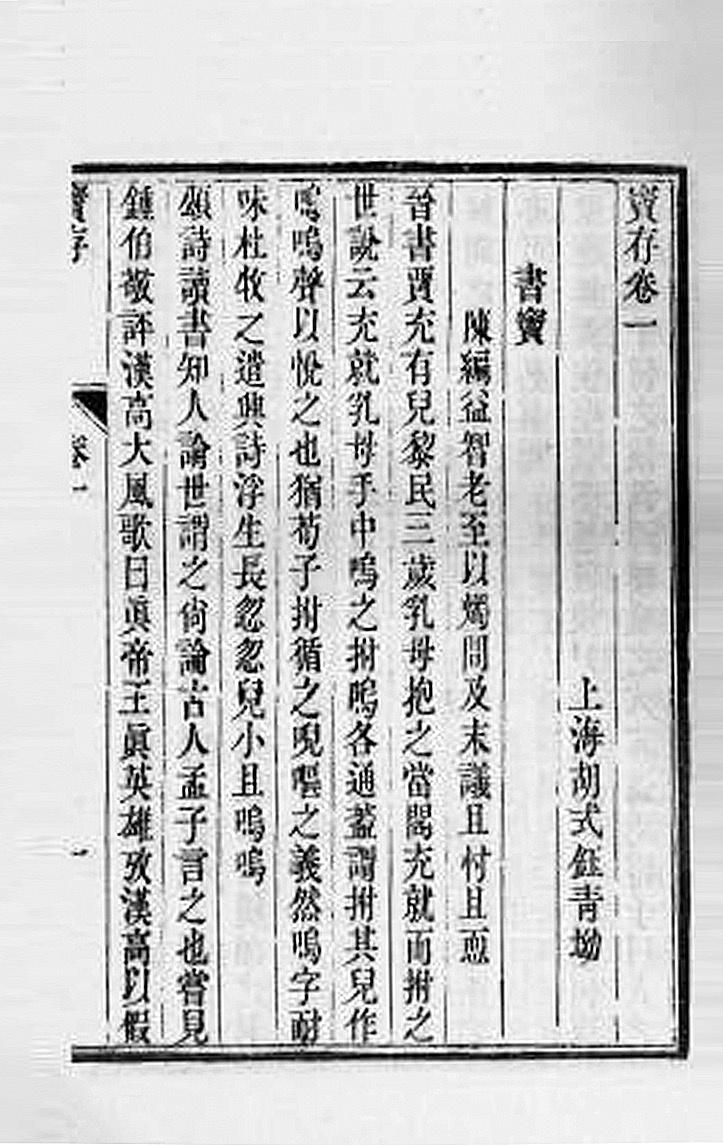 竇存卷一
上海胡式鈺青坳
書竇
陳編益智老至以燭問及末議且忖且恧
晉書賈充有兒黎民三歲乳母抱之當閣充就而拊之
世說云充就乳母手中嗚之拊嗚各通蓋謂拊其兒作
嗚嗚聲以悅之也猶荀子拊循之唲嘔之義然嗚字耐
味杜牧之遣興詩浮生長忽忽兒小且嗚嗚
頌詩讀書知人論世謂之尙論古人孟子言之也嘗見
鍾伯敬評漢高大風歌曰眞帝王眞英雄攷漢高以假
竇存
卷一
一